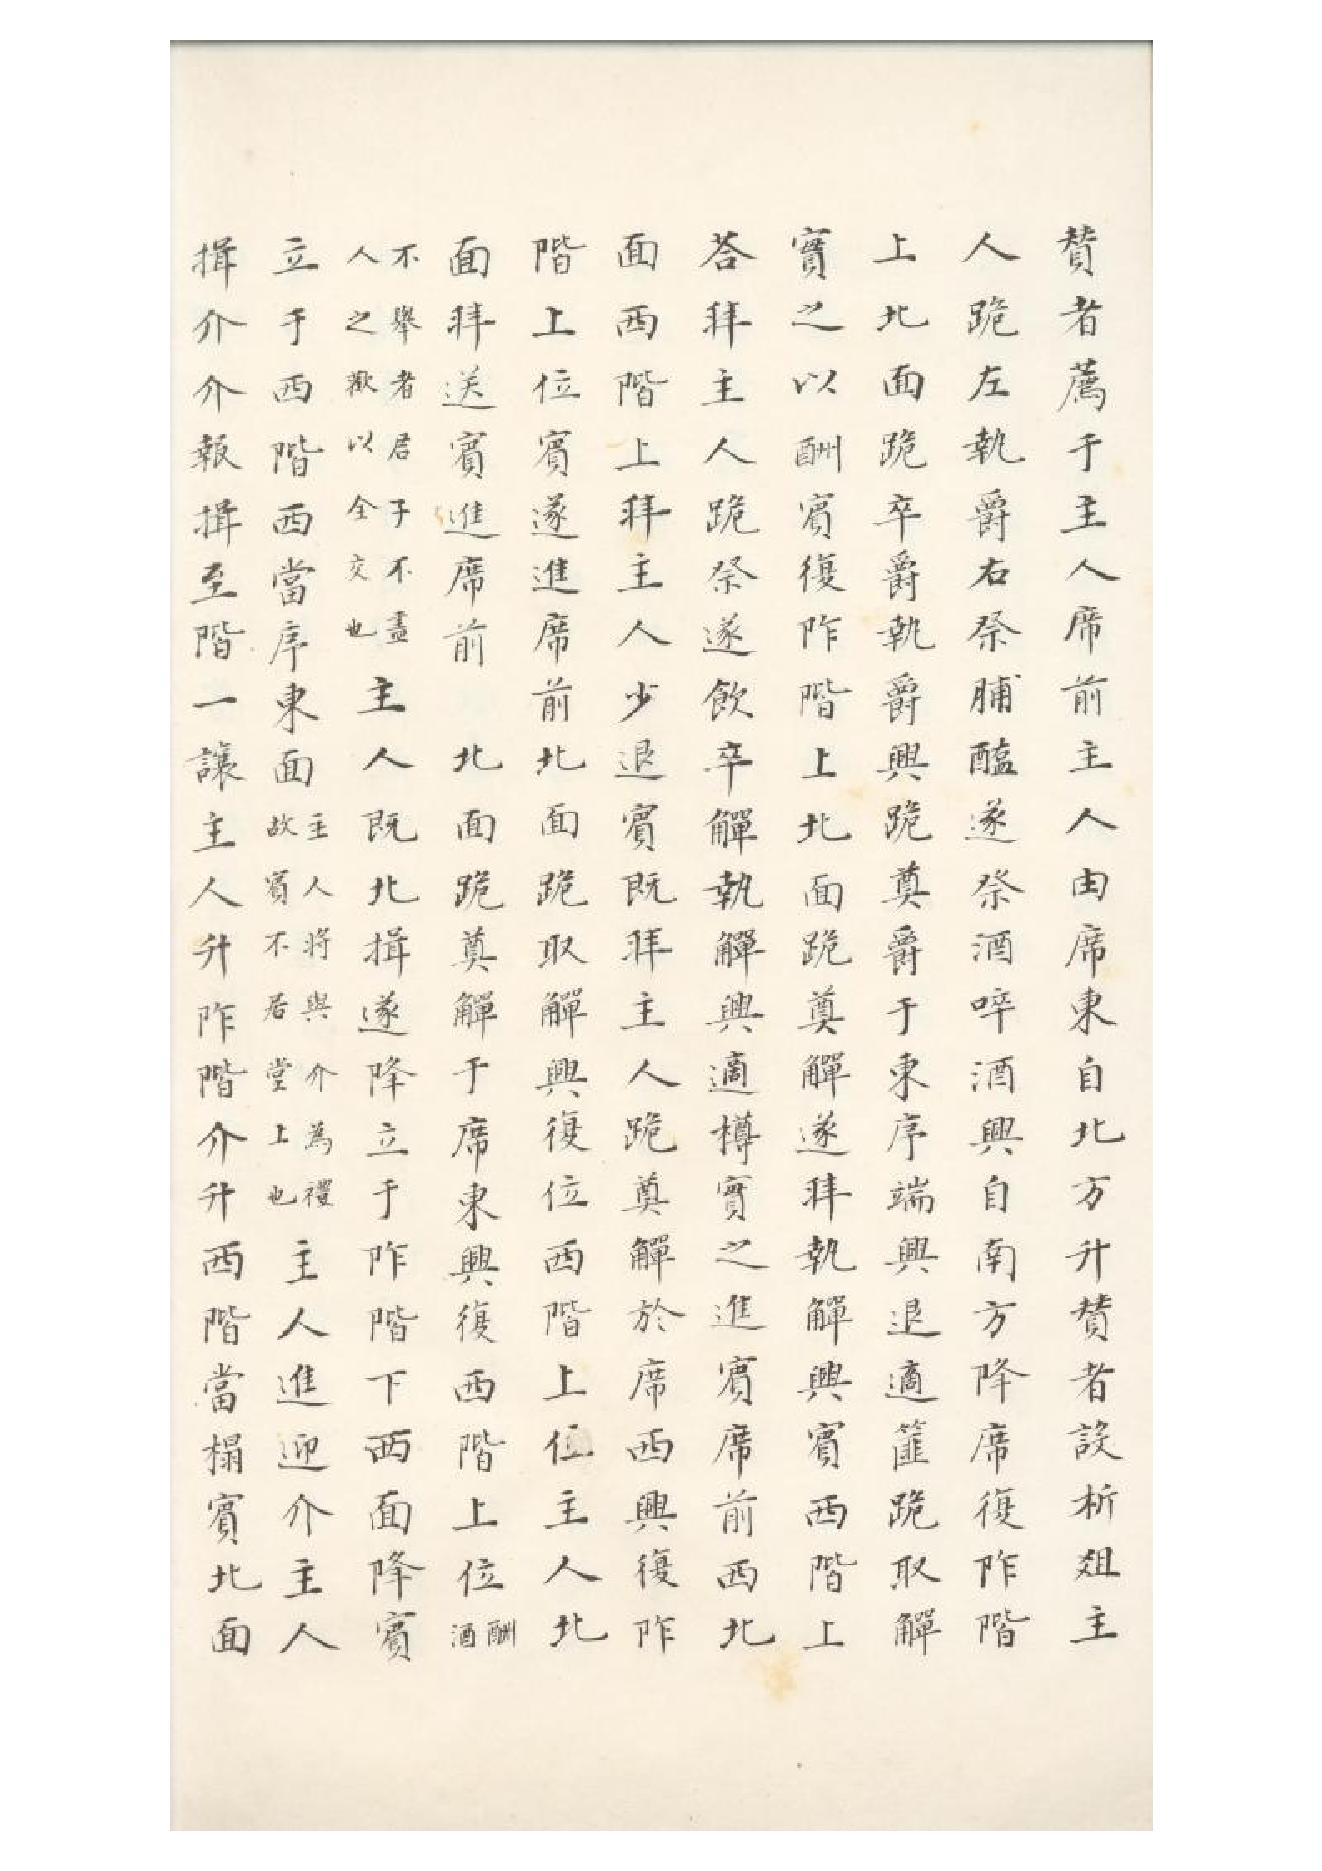 賛者薦于主人席前主人由席東自北方升賛者設析俎主
人跪左執爵右祭脯醢遂祭酒啐酒興自南方降席復阼階
上北面跪卒爵執爵興跪奠爵于東序端興退適篚跪取觶
實之以酬賓復阼階上北面跪奠觶遂拜執觶興賓西階上
荅拜主人跪祭遂飲卒觶執觶興適樽實之進賓席前西北
面西階上拜主人少退賓既拜主人跪奠觶於席西興復阼
階上位賓遂進席前北面跪取觶興復位西階上位主人北
面拜送賓進席前　北面跪奠觶于席東興復西階上位酬酒
不舉者君子不盡人之歡以全交也主人既北揖遂降立于阼階下西面降賓
立于西階西當序東面主人將與介為禮故賓不居堂上也主人進迎介主人
揖介介報揖至階一讓主人升阼階介升西階當榻賓北面